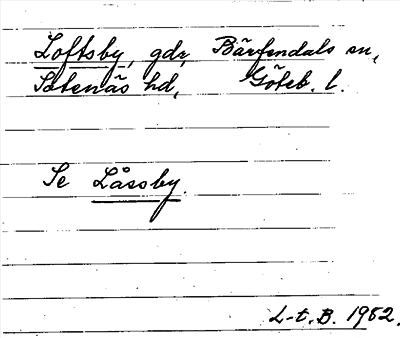 Loftsby, gdr, Bärfendals sn,
Sotenäs hd, Göteb. l.
Se Låssby.
L-t. B. 1952.